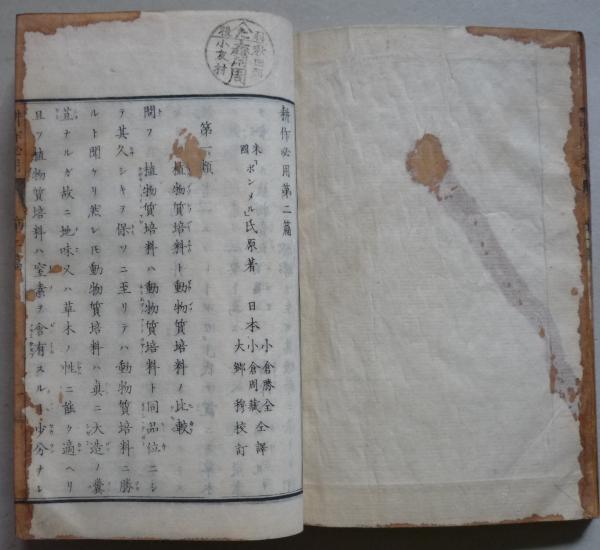 耕作必用第二篇
米國「ボンメル」氏原著 日本
小倉勝全
小倉周蔵 仝譯
大鄕穆校訂
第一類
植物質培料ト動物質培料ノ比較
問フ 植物質培料ハ動物質培料ト同品位ニシ
テ其久シキヲ保ツニ至リテハ動物質培料ニ勝
ルト聞ケリ然レ𪜈動物質培料ハ真ニ大造ノ糞
苴ナルガ故ニ地味又ハ草木ノ性ニ能ク適ヘリ
且ツ植物質培料ハ窒素ヲ含有スル少分ナレ